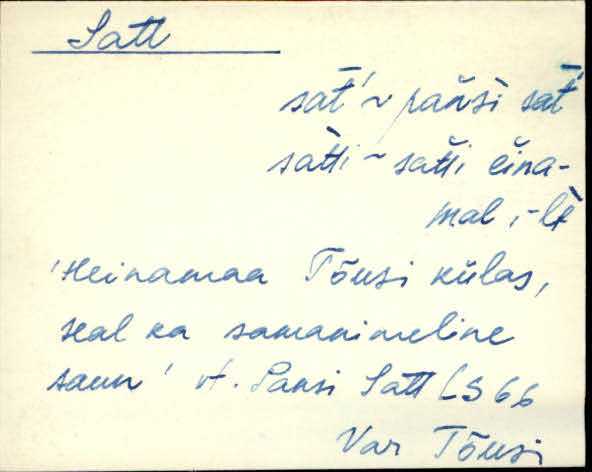 Satt
sat̄' ~ pańsi sat̄'
sat̀ti ~ sat̀ti èina-
mal, -lt
'Heinamaa Tõusi külas,
seal ka samanimeline
saun' vt. Pansi Satt LS 66
Var Tõusi